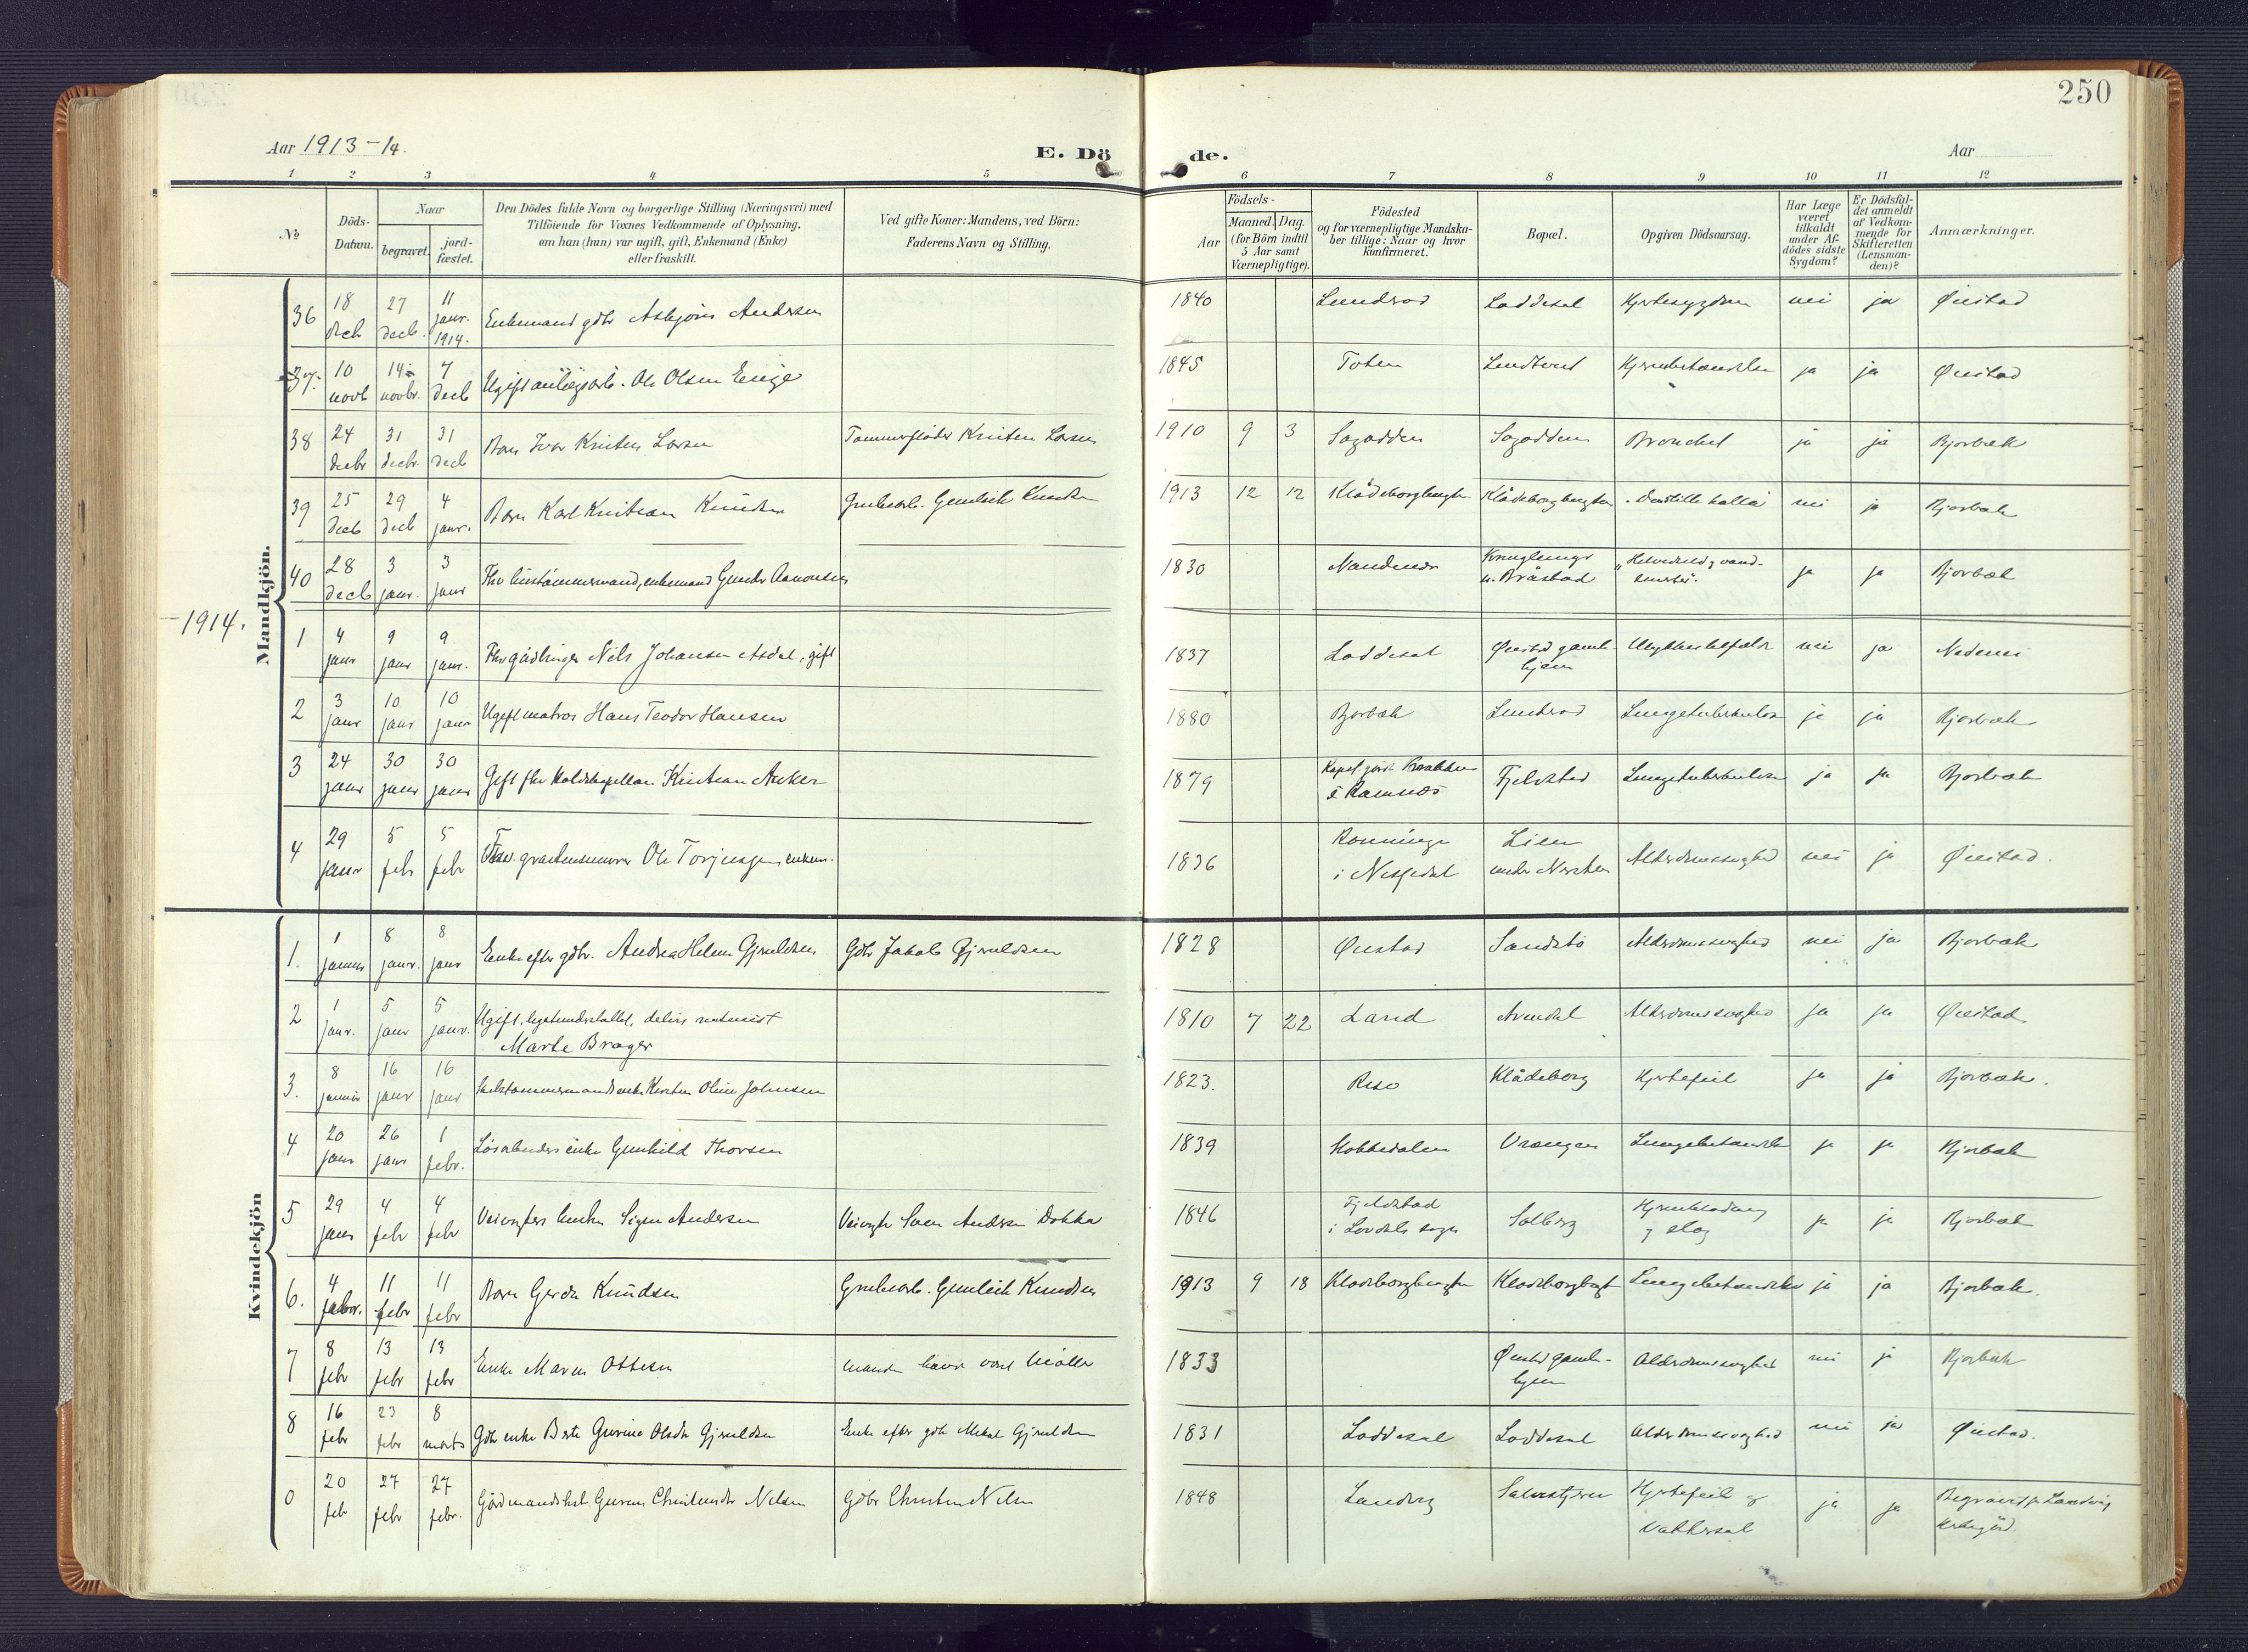 250
Aar 1913-14.
E. Dö de.
Aar
1 2 3 4 5 6 7 8 9 10 11 12
No
Döds-Datum.
Naar
begravet.
jord-fæstet.
Den Dödes fulde Navn og borgerlige Stilling (Næringsvei) med
Tilföiende for Voxnes Vedkommende af Oplysning,
om han (hun) var ugift, gift, Enkemand (Enke)
eller fraskilt.
Ved gifte Koner: Mandens, ved Börn:
Faderens Navn og Stilling.
Födsels-
Aar
Maaned. Dag.
(for Börn indtil
5 Aar samt
Værnepligtige).
Födested
og for værnepligtige Mandska-
ber tillige: Naar og hvor
konfirmeret.
Bopæl.
Opgiven Dödsaarsag.
Har Læge
været
tilkaldt
under Af-
dödes sidste
Sygdom?
Er Dödsfal-
det anmeldt
af Vedkom-
mende for
Skifteretten
(Lensman-
den)?
Anmærkninger.
Mandkjön.
36 18 decb 27 decb. 11 janr. 1914. Enkemand gdbr Asbjörn Andersen 1840 Lundrød Loddesøl Hjertesygdom nei ja Øiestad
37. 10 novb 14 novbr. 7 decb Ugift anlægsarb. Ole Olsen Enige 1845 Toten ja ja Øiestad
38 24 decbr 31 decbr. 31 decb Barn Ivar Kristen Larsen Tømmerfløder Kristen Larsen 1910 9 3 Sagodden Sagodden Bronchit ja ja Bjorbæk
39 25 decb 29 decb 4 janr. Barn Karl Kristian Knudsen Grubearb. Gunleik Knudsen 1913 12 12 Klådeborgbugten Klådeborgbugten nei ja Bjorbæk
40 28 decb 3 janr. 3 janr Fhv hustømmermand, enkemand Gunder Aanonsen 1830 u. Bråstad ja ja Bjorbæk
-1914.
1 4 janr 9 janr 9 janr. Fhv gådbruger Nils Johansen Asdal, gift 1837 Loddesøl Øiestad gamle-
hjem Ulykkestilfælde nei ja Nedenes
2 3 janr 10 janr 10 janr Ugift matros Hans Teodor Hansen 1880 Bjorbæk Lundrød Lungetuberkulose ja ja Bjorbæk
3 24 janr 30 janr 30 janr Gift fhv Kaldskapellan Kristian Anker 1879 i Ramnes Fjelstad Lungetuberkulose ja ja Bjorbæk
4 29 janr 5 febr 5 febr Fhv. gråstensmurer Ole Torjusen enkem. 1836 i Nissedal Lien
under Alderdomssvaghed nei ja Øiestad.
Kvindekjön
1. 1 januar 8 janr. 8 janr Enke efter gdbr. Andrea Helene Gjeruldsen Gdbr Jakob Gjeruldsen 1828 Øiestad Sandstø Alderdomssvaghed nei ja Bjorbæk
2 1 janr. 5 janr 5 janr. Ugift,
Marte Brager 1810 7 22 Land Arendal Alderdomssvaghed ja ja Øiestad
3. 8 januar 16 janr 16 janr Kirsten Oline Johnsen 1823. Risø Klådeborg Hjertefeil ja ja Bjorbæk.
4 20 janr 26 janr 1 febr. Løsarbeiders enke Gunhild Thorsen 1839 Vrengen Lungebetændelse ja ja Bjorbæk
5 29 janr 4 febr 4 febr Veivogters Enke Signe Andersen Veivogter Søren Andersen Dokka 1846 Fjeldstad
Solberg
og slag ja ja Bjorbæk
6. 4 febr. 11 febr 11 febr Barn Gerda Knudsen Grubearb. Gunleik Knudsen 1913 9 18 Klodeborgbugten Klodeborgbugt Lungebetændelse ja ja Bjorbæk.
7 8 febr 13 febr 13 febr Enke Maren Ottesen manden havde været Møller 1833 Øiestad gamle-
hjem Alderdomssvaghed nei ja Bjorbæk
8 16 febr 23 febr 8 marts Gdbr enke Berte Gurine Olsdtr Gjeruldsen Enke efter gdbr Mikal Gjeruldsen 1831 Loddesøl Loddesøl Alderdomssvaghed nei ja Øiestad.
0 20 feb 27 febr 27 febr. Gårdmandshst. Guren Christensdtr Nilsen Gdbr Christen Nilsen 1848 Landvig Hjertefeil og
Vattersot ja ja Begravet på Landvig
kirkegård.